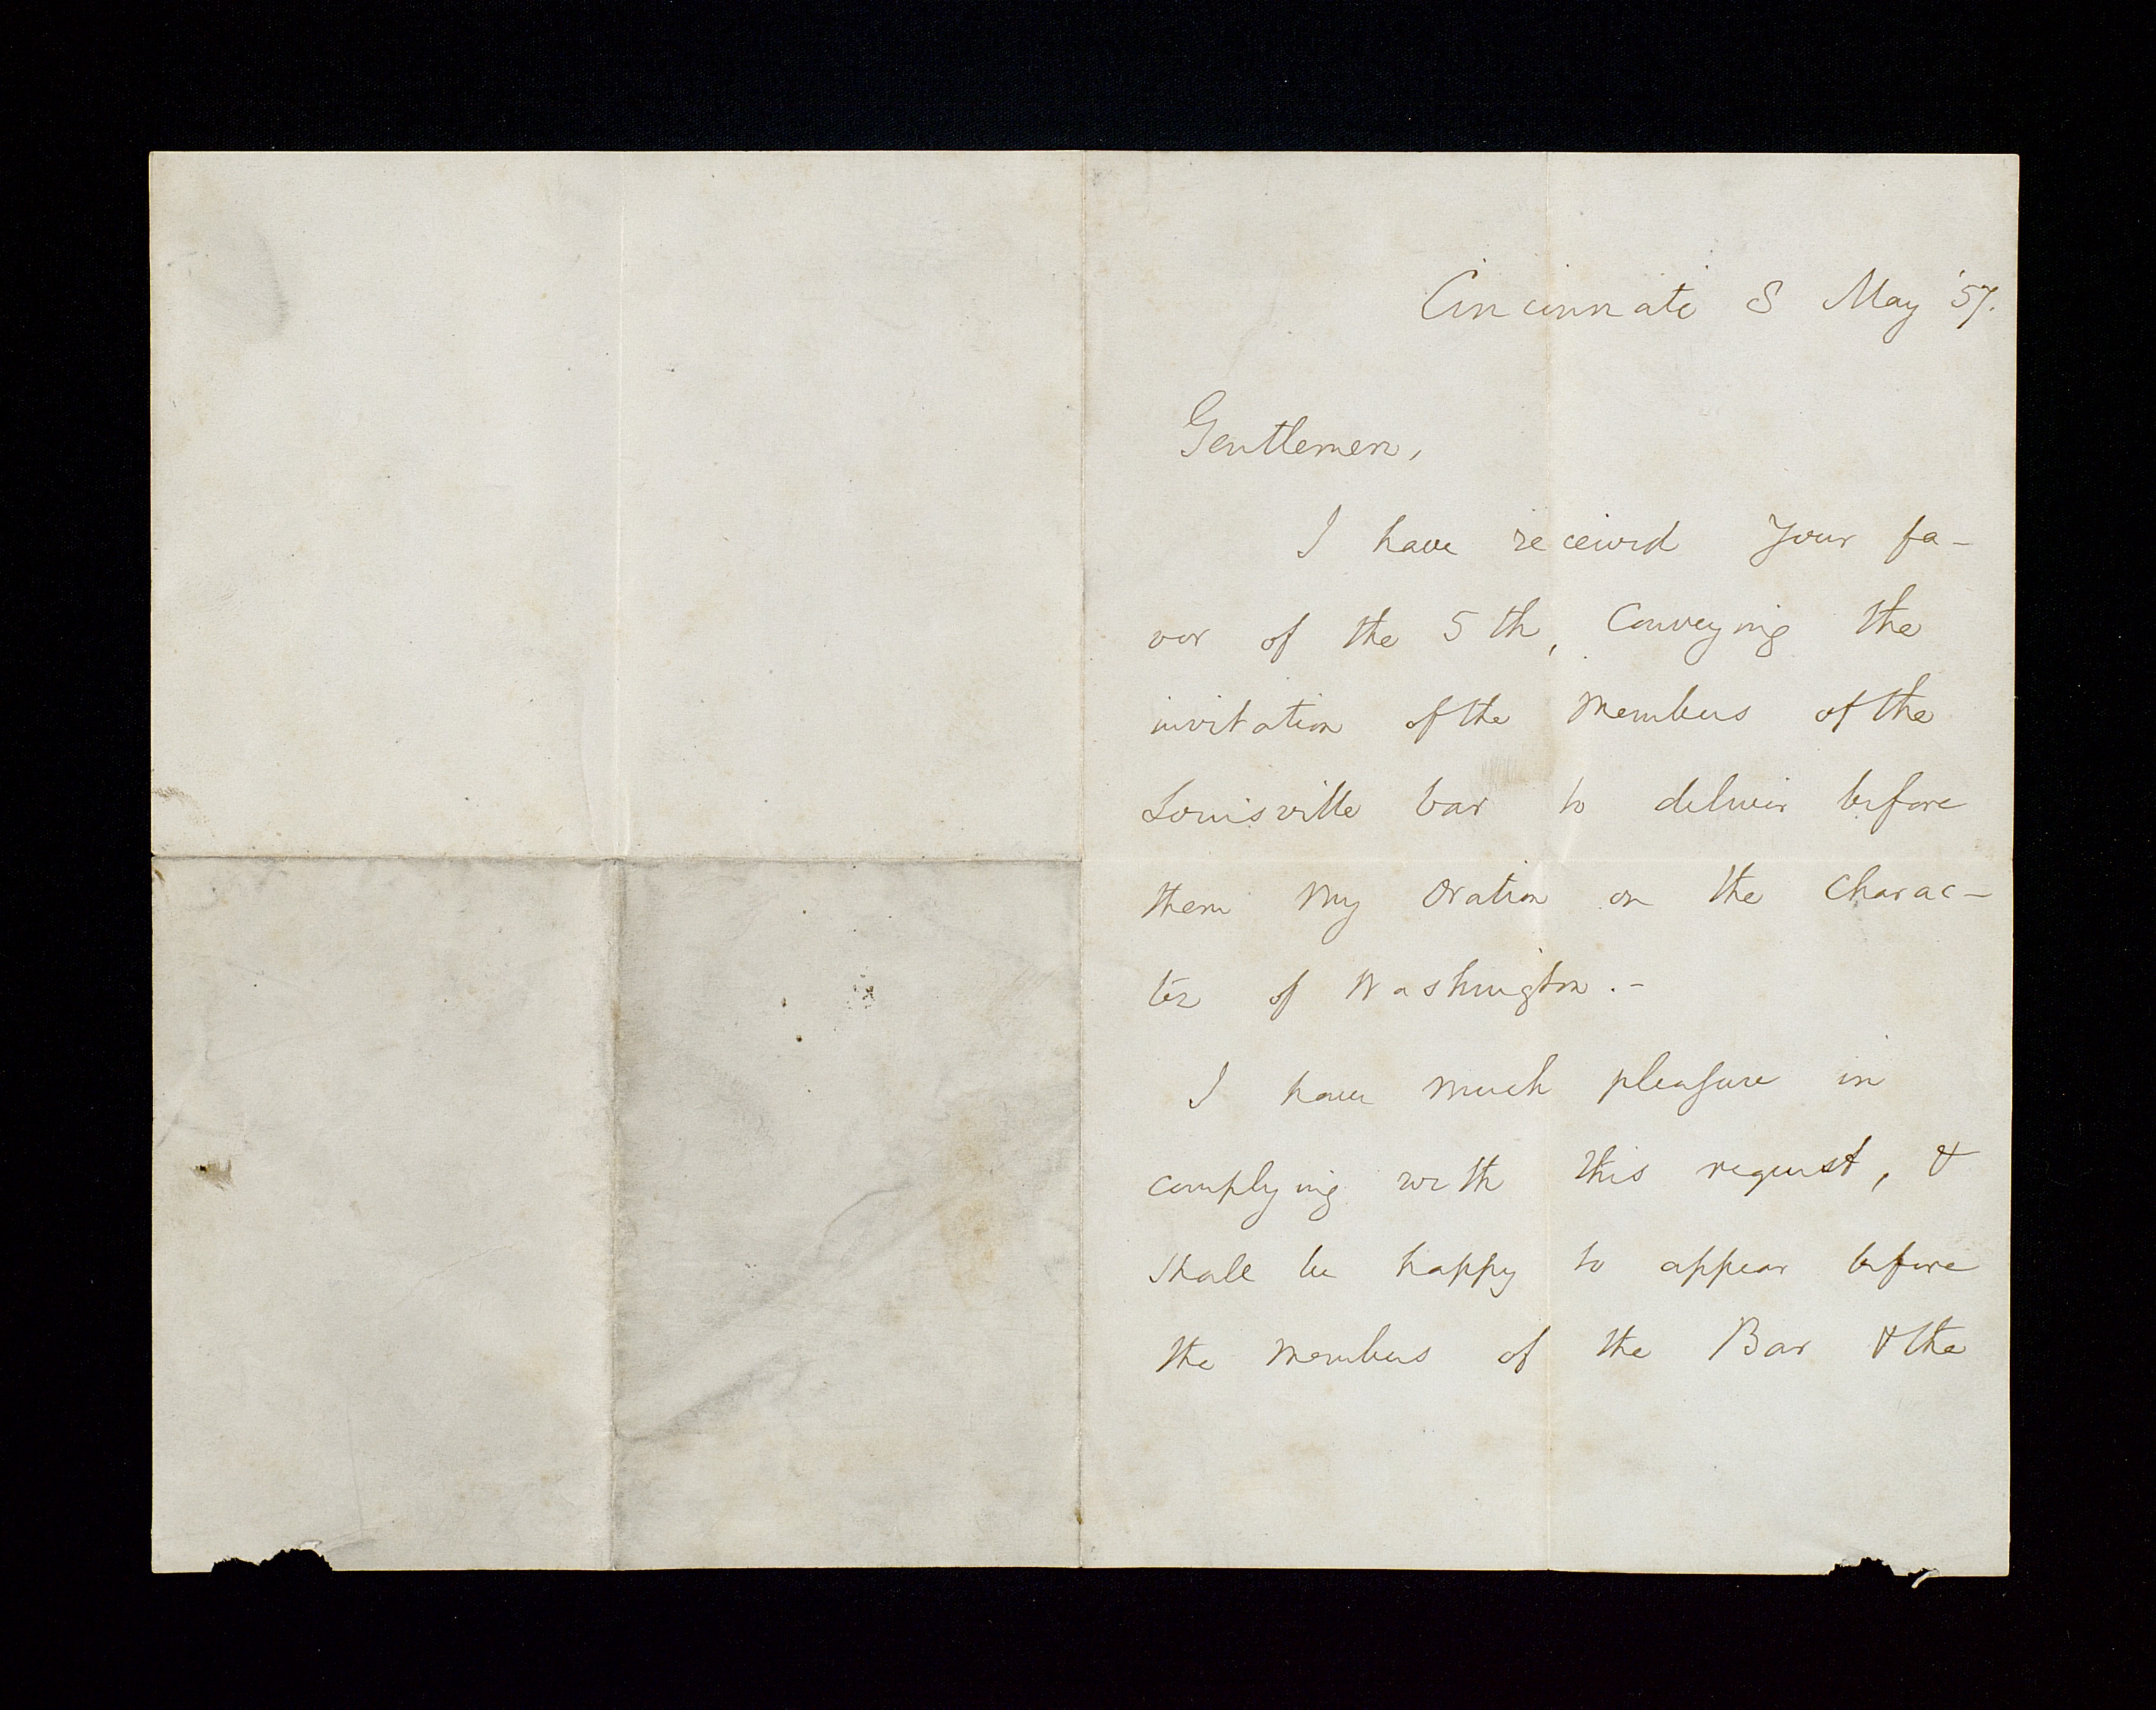 Cincinnati 8 May '57.
Gentlemen,
I have received your fa-
vor of the 5th, conveying the
invitation of the members of the
Louisville bar to deliver before
them my Oration on the Charac-
ter of Washington.-
I have much pleasure in
complying with this request, &
shall be happy to appear before
the members of the Bar & the